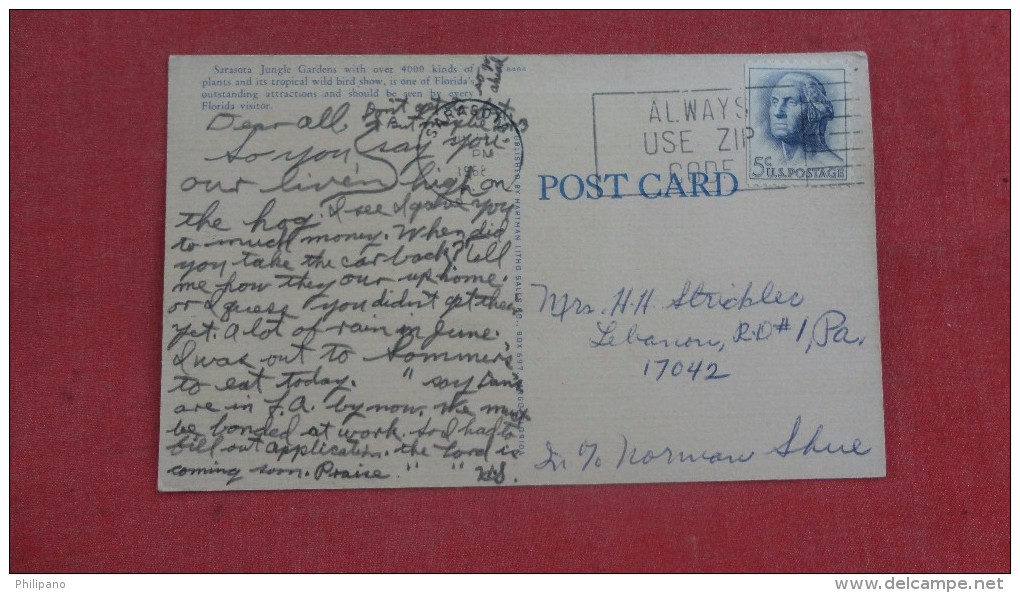 Sarasota Jungle Gardens with over 4000 kinds of
plants and its tropical wild bird show, is one of Florida's
outstanding attractions and should be seen by every
Florida visitor.
Dear all.
So you say you
our live'n high on
the hog. I see I gave you
to much money. When did
you take the car back? Tell
me how they our up home.
or I guess you didn't get there
yet. A lot of rain in June.
I was out to Sommers
to eat today. " say Dan's
are in J.A. by now. We must
be bonded at work. So I had to
fill out application. The Lord is
coming soon. Praise. " " H.S.
Don't get
But maybe
SARASOTA
PM
PUBLISHED BY HARTMAN LITHO SALES CO., BOX 697
ALWAYS
USE ZIP
CODE
5c U.S. POSTAGE
POST CARD
Mrs. H.H. Strickler
Lebanon, R.D #1, Pa.
17042
In % Norman Shue
Philipano
www.delcampe.net